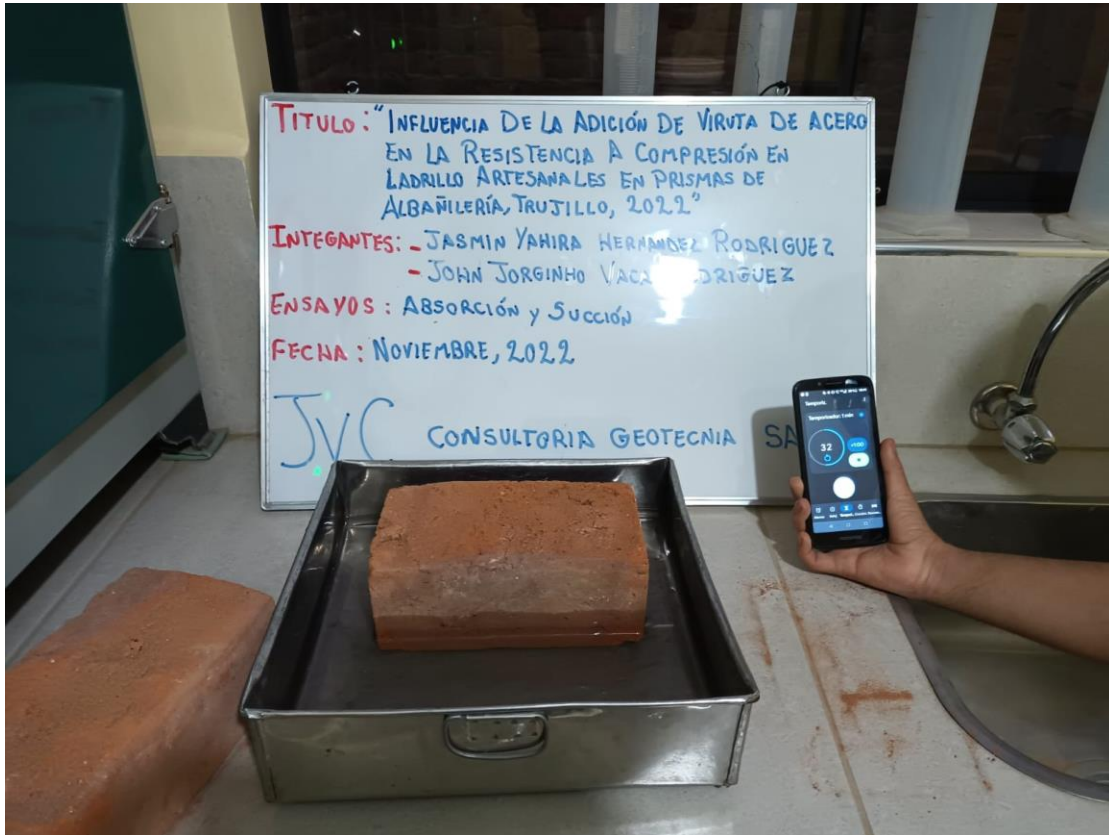 TITULO: "INFLUENCIA DE LA ADICIÓN DE VIRUTA DE ACERO
EN LA RESISTENCIA A COMPRESIÓN EN
LADRILLO ARTESANALES EN PRISMAS DE
ALBAÑILERÍA, TRUJILLO, 2022"
INTEGANTES: - JASMIN YAHIRA HERNANDEZ RODRIGUEZ
- JOHN JORGINHO
ENSAYOS: ABSORCIÓN y SUCCIÓN
FECHA: NOVIEMBRE, 2022
JVC CONSULTORIA GEOTECNIA
Temporizador 1 min
32